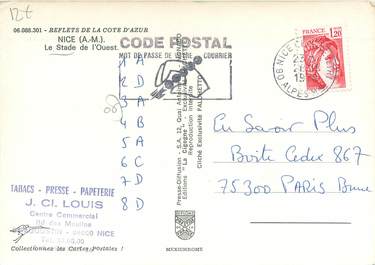 12t
06.088.301 - REFLETS DE LA COTE D'AZUR
NICE (A.-M.).
Le Stade de l'Ouest.
CODE POSTAL
MOT DE PASSE DE VOTRE COURRIER
06 NICE
ALPES M
1,20
FRANCE
1
2 D
3 A
4 B
5 A
6 C
7 D
8 D
Presse-Diffusion - S.A. 12, Quai Antoine MONACO
Editions "La Cigogne" - Exclusivité
Reproduction interdite
Cliché Exclusivité FALLETTO
En Savoir Plus
Boite Cedex 867
75300 PARIS Brune
TABACS - PRESSE - PAPETERIE
J. Cl. LOUIS
Centre Commercial
Bd des Moulins
06000 NICE
Collectionnez les Cartes Postales !
MEXICHROME